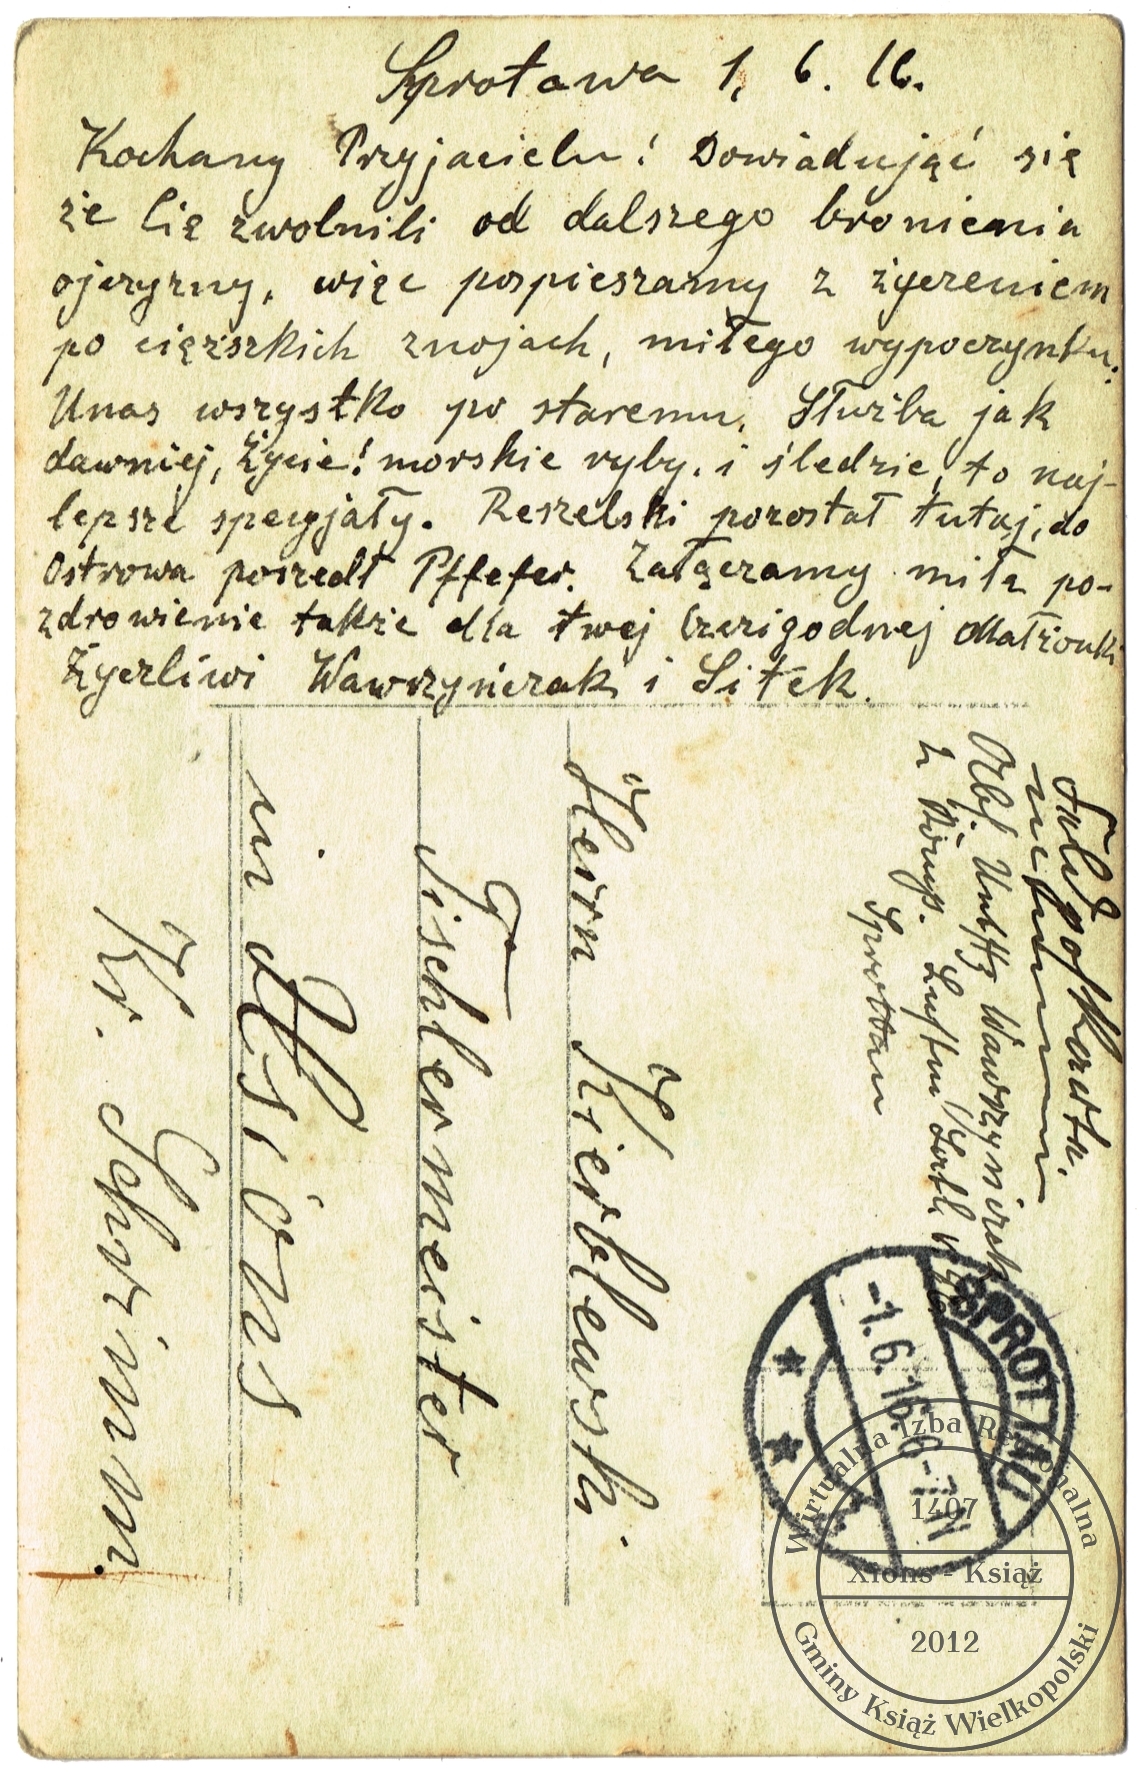 Sprotawa 1, 6. 16.
Kochany Przyjacielu! Dowiadującć się
że Cię zwolnili od dalszego bronienia
ojczyzny, więc pospieszamy z życzeniem
po ciężskich znojach, miłego wypoczynku.
Unas wszystko po staremu. Służba jak
dawniej, Życie! morskie ryby. i śledzie, to naj-
lepsze specyjały. Reszelski pozostał tutaj, do
Ostrowa poszedł Pffefer. Załączamy miłe po-
zdrowienie także dla twej czcigodnej Małżonki
Życzliwi Wawrzyńczak i Sitek.
Feldpostkarte.
Wawrzynczak
Sprottau
Herrn Kierblewski.
Tischlermeister
in Xions
Kr. Schrimm.
SPROTTAU
-1.6.16. 6-7N
Wirtualna Izba Regionalna
1407
Xions - Książ
2012
Gminy Książ Wielkopolski